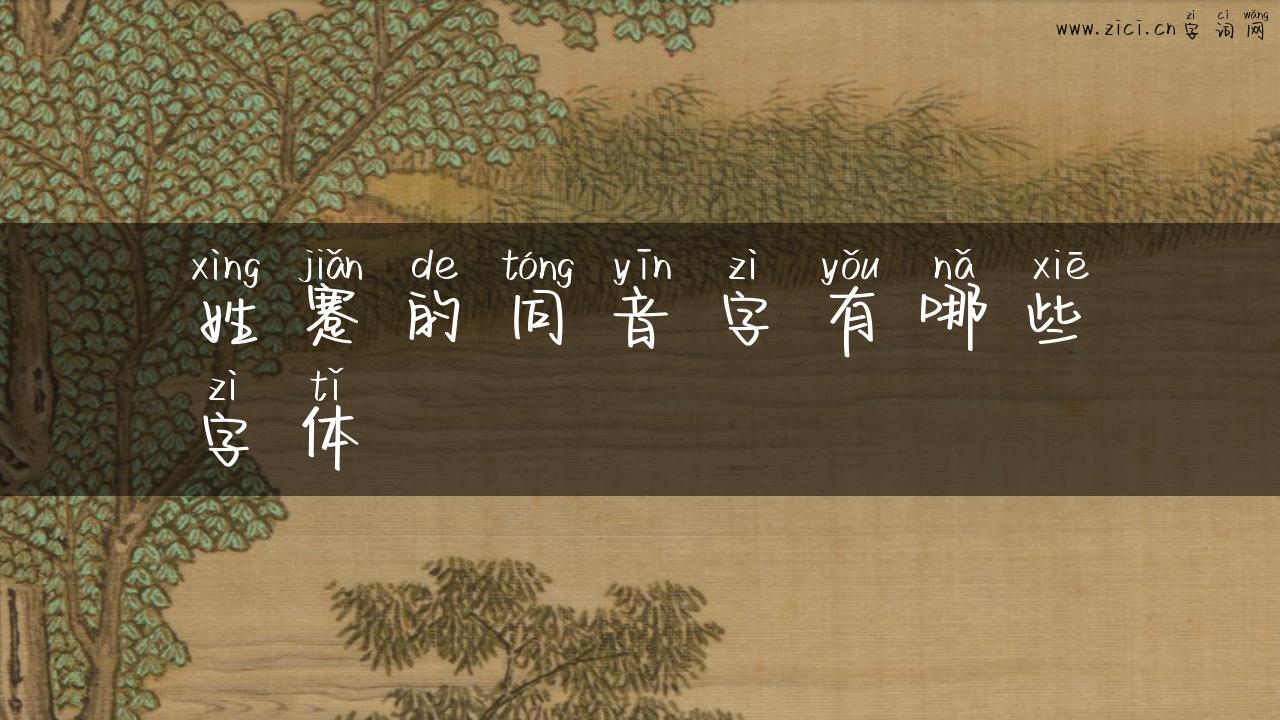 www.zici.cn
zì cí wǎng
字词网
xìng jiǎn de tóng yīn zì yǒu nǎ xiē
姓蹇的同音字有哪些
zì tǐ
字体